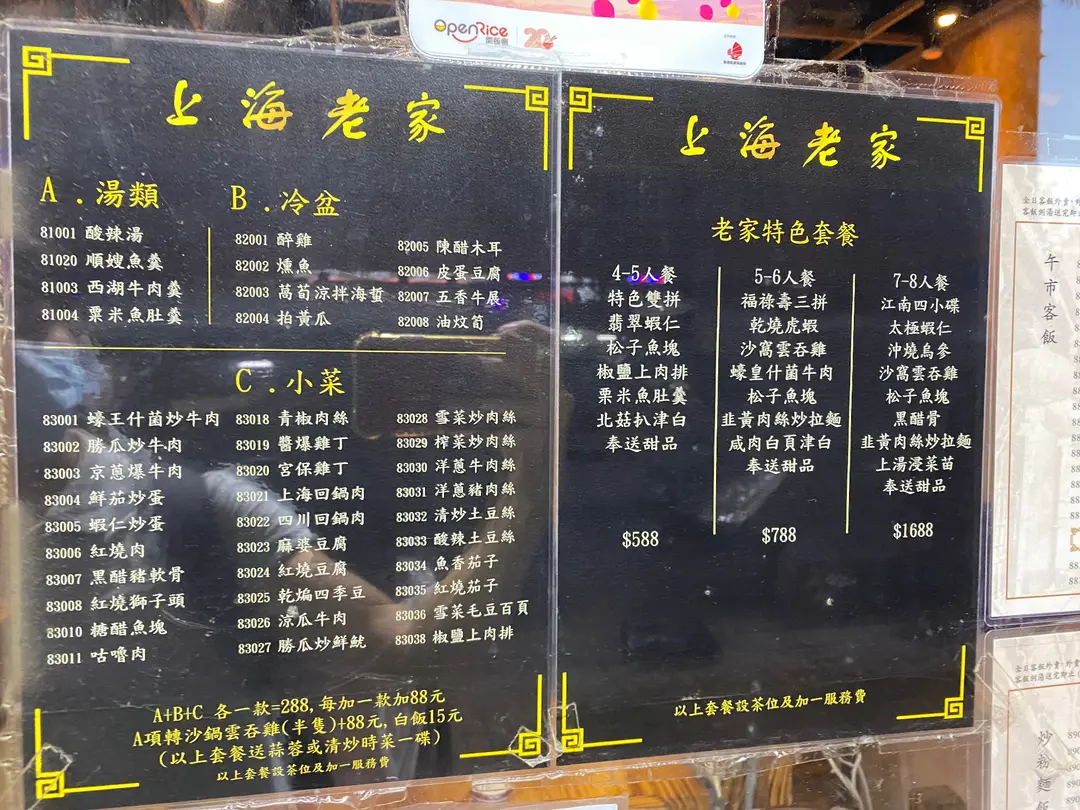 OpenRice
開飯喇
上海老家
A.湯類
81001 酸辣湯
81020 順嫂魚羹
81003 西湖牛肉羹
81004 粟米魚肚羹
B.冷盆
82001 醉雞
82002 燻魚
82003 萵荀涼拌海蜇
82004 拍黃瓜
82005 陳醋木耳
82006 皮蛋豆腐
82007 五香牛展
82008 油炆筍
C.小菜
83001 蠔王什菌炒牛肉
83002 勝瓜炒牛肉
83003 京蔥爆牛肉
83004 鮮茄炒蛋
83005 蝦仁炒蛋
83006 紅燒肉
83007 黑醋豬軟骨
83008 紅燒獅子頭
83010 糖醋魚塊
83011 咕嚕肉
83018 青椒肉絲
83019 醬爆雞丁
83020 宮保雞丁
83021 上海回鍋肉
83022 四川回鍋肉
83023 麻婆豆腐
83024 紅燒豆腐
83025 乾煸四季豆
83026 涼瓜牛肉
83027 勝瓜炒鮮魷
83028 雪菜炒肉絲
83029 榨菜炒肉絲
83030 洋蔥牛肉絲
83031 洋蔥豬肉絲
83032 清炒土豆絲
83033 酸辣土豆絲
83034 魚香茄子
83035 紅燒茄子
83036 雪菜毛豆百頁
83038 椒鹽上肉排
A+B+C 各一款=288,每加一款加88元
A項轉沙鍋雲吞雞(半隻)+88元,白飯15元
(以上套餐送蒜蓉或清炒時菜一碟)
以上套餐設茶位及加一服務費
上海老家
老家特色套餐
4-5人餐
特色雙拼
翡翠蝦仁
松子魚塊
椒鹽上肉排
粟米魚肚羹
北菇扒津白
奉送甜品
$588
5-6人餐
福祿壽三拼
乾燒虎蝦
沙窩雲吞雞
蠔皇什菌牛肉
松子魚塊
韭黃肉絲炒拉麵
咸肉白頁津白
奉送甜品
$788
7-8人餐
江南四小碟
太極蝦仁
沖燒烏參
沙窩雲吞雞
松子魚塊
黑醋骨
韭黃肉絲炒拉麵
上湯浸菜苗
奉送甜品
$1688
以上套餐設茶位及加一服務費
午市客飯
炒粉麵飯